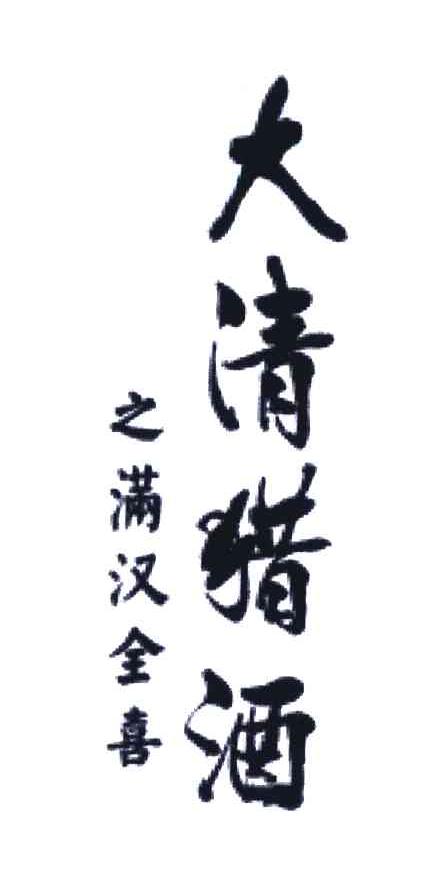 大清猎酒
之满汉全喜